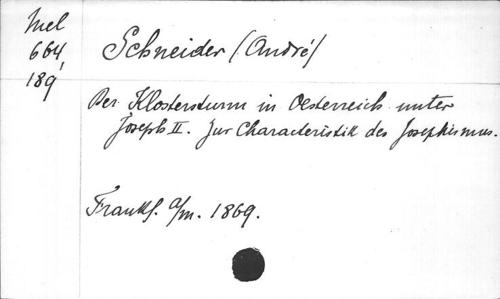 Mel
664,
189
Schneider (André)
Der Klostersturm in Oesterreich unter
Joseph II. Zur Characteristik des Josephismus.
Frankf. a/m. 1869.